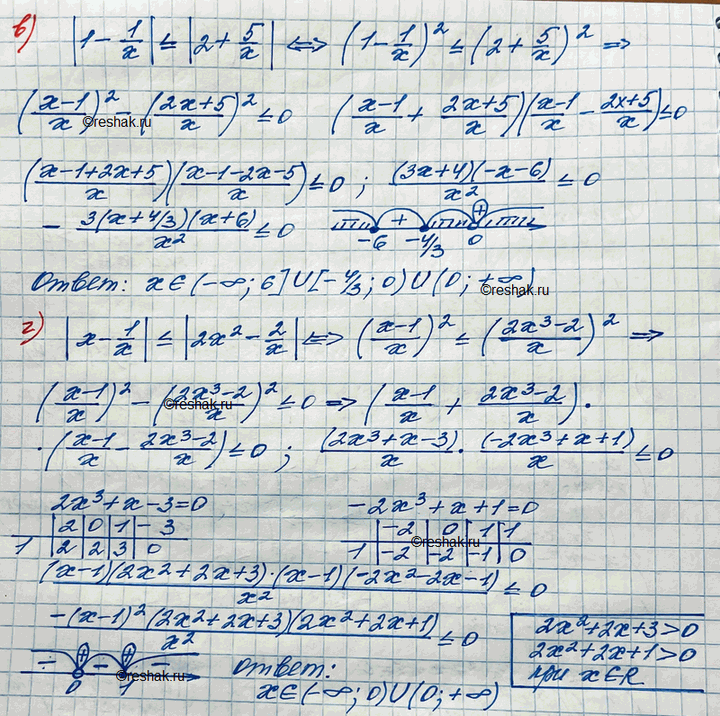 в) |1 - 1/x| ≤ |2 + 5/x| ⟺ (1 - 1/x)² ≤ (2 + 5/x)² ⇒
((x-1)/x)² - ((2x+5)/x)² ≤ 0 ((x-1)/x + (2x+5)/x)((x-1)/x - (2x+5)/x) ≤ 0
©reshak.ru
((x-1+2x+5)/x)((x-1-2x-5)/x) ≤ 0 ; (3x+4)(-x-6)/x² ≤ 0
- 3(x+4/3)(x+6)/x² ≤ 0 + + -6 -4/3 0
Ответ: x ∈ (-∞; 6] ∪ [-4/3; 0) ∪ (0; +∞)
©reshak.ru
г) |x - 1/x| ≤ |2x² - 2/x| ⟺ ((x-1)/x)² ≤ ((2x³-2)/x)² ⇒
((x-1)/x)² - ((2x³-2)/x)² ≤ 0 ⇒ ((x-1)/x + (2x³-2)/x)·
©reshak.ru
·((x-1)/x - (2x³-2)/x) ≤ 0 ; (2x³+x-3)/x · (-2x³+x+1)/x ≤ 0
2x³+x-3=0 -2x³+x+1=0
|2|0|1|-3 |-2|0|1|1
1|2|2|3|0 1|-2|-2|-1|0
©reshak.ru
(x-1)(2x²+2x+3)·(x-1)(-2x²-2x-1)/x² ≤ 0
-(x-1)²(2x²+2x+3)(2x²+2x+1)/x² ≤ 0
2x²+2x+3>0
2x²+2x+1>0
при x∈R
- + - + - 0 1
©reshak.ru
Ответ:
x ∈ (-∞; 0) ∪ (0; +∞)